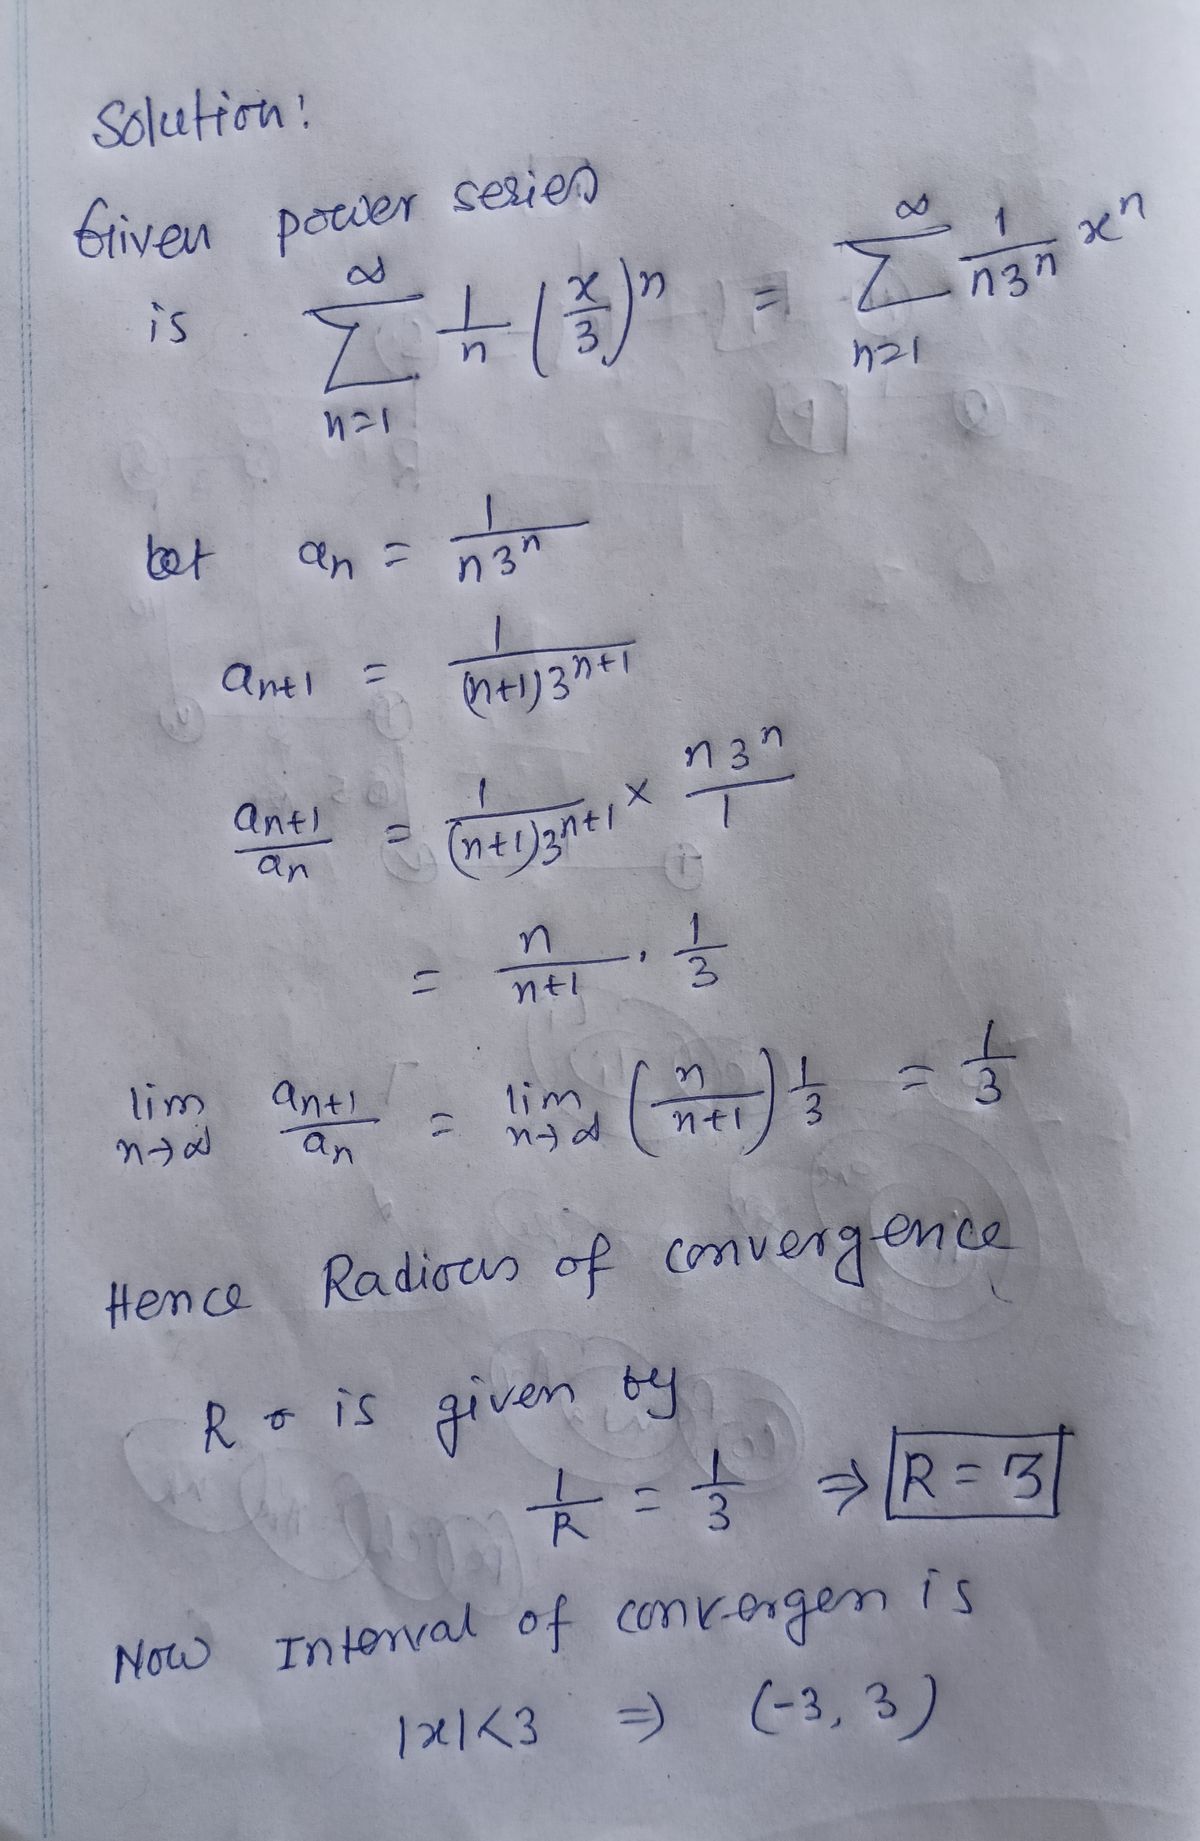 Solution:
Given power series
is ∑_{n=1}^{∞} 1/n (x/3)^n = ∑_{n=1}^{∞} 1/(n3^n) x^n
let a_n = 1/(n3^n)
a_{n+1} = 1/((n+1)3^{n+1})
a_{n+1}/a_n = 1/((n+1)3^{n+1}) × n3^n/1
= n/(n+1) · 1/3
lim_{n→∞} a_{n+1}/a_n = lim_{n→∞} (n/(n+1)) 1/3 = 1/3
Hence Radious of convergence
R is given by
1/R = 1/3 ⇒ R = 3
Now Interval of convergen is
|x|<3 ⇒ (-3, 3)